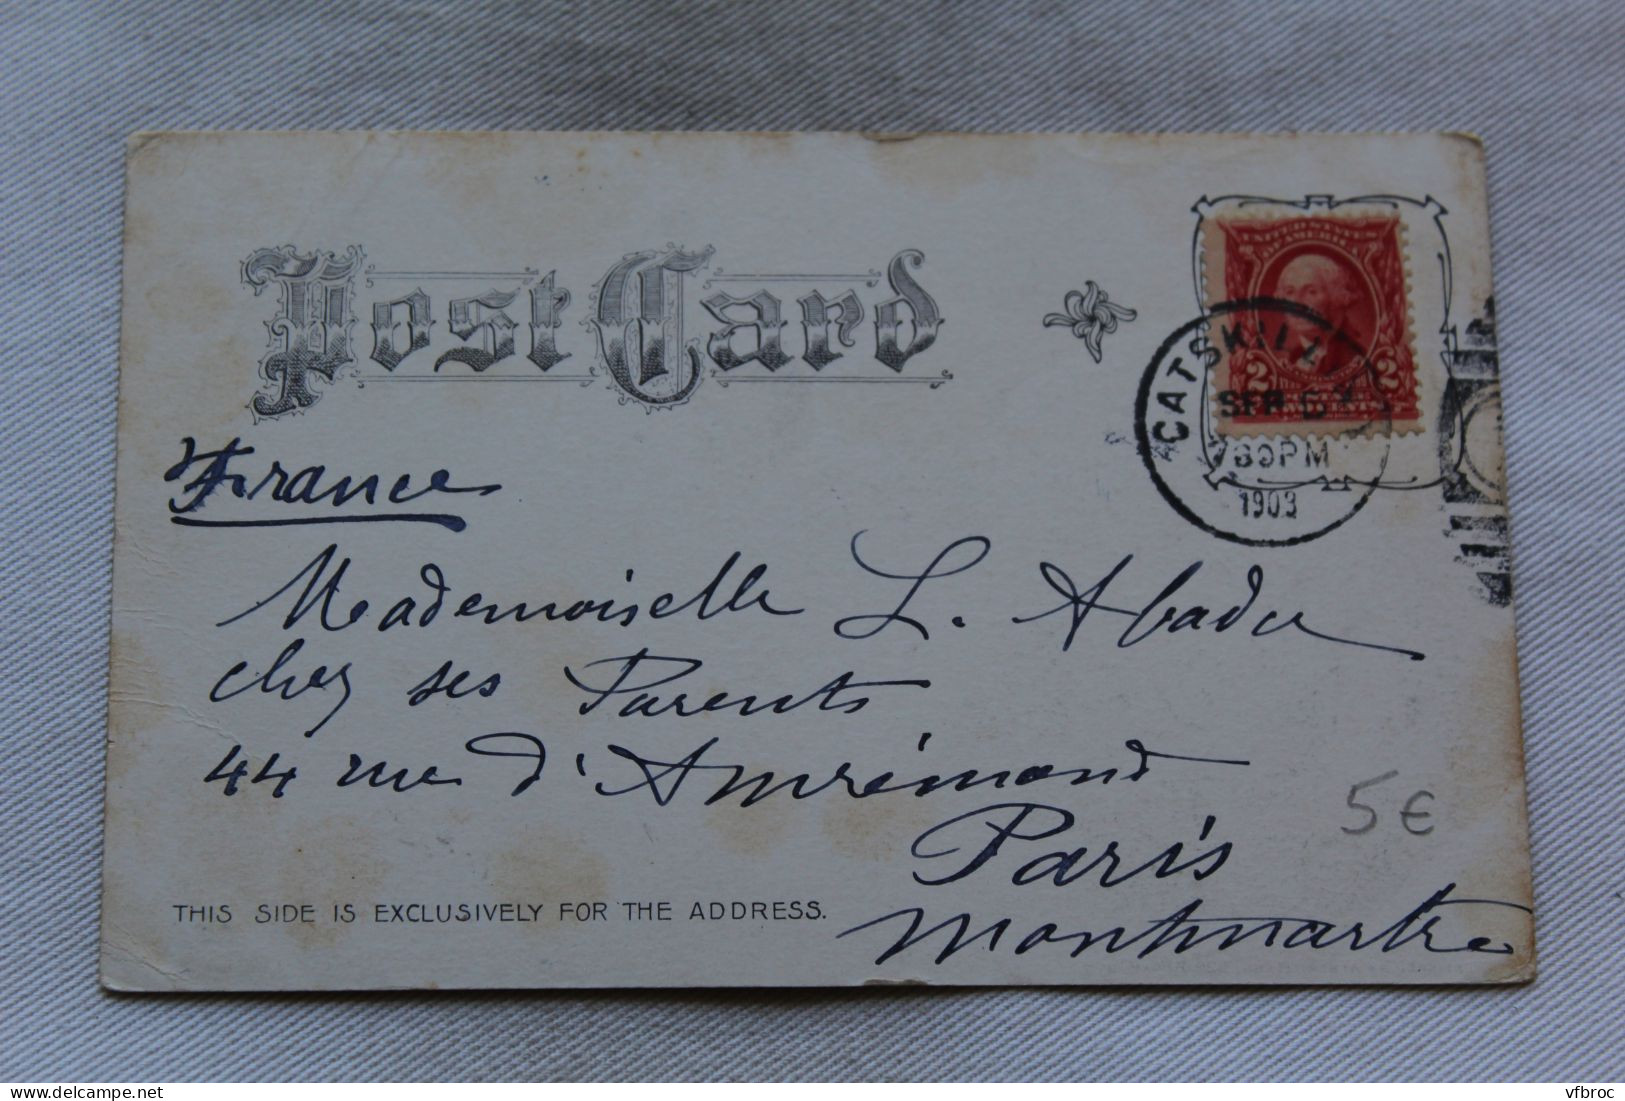 Post Card
UNITED STATES
OF AMERICA
2 2
CATSKILL N.Y.
SEP 5
730PM
1903
France
Mademoiselle L. Abadie
chez ses Parents
44 rue d'Amrémond
Paris
Montmartre
5€
THIS SIDE IS EXCLUSIVELY FOR THE ADDRESS.
vfbroc